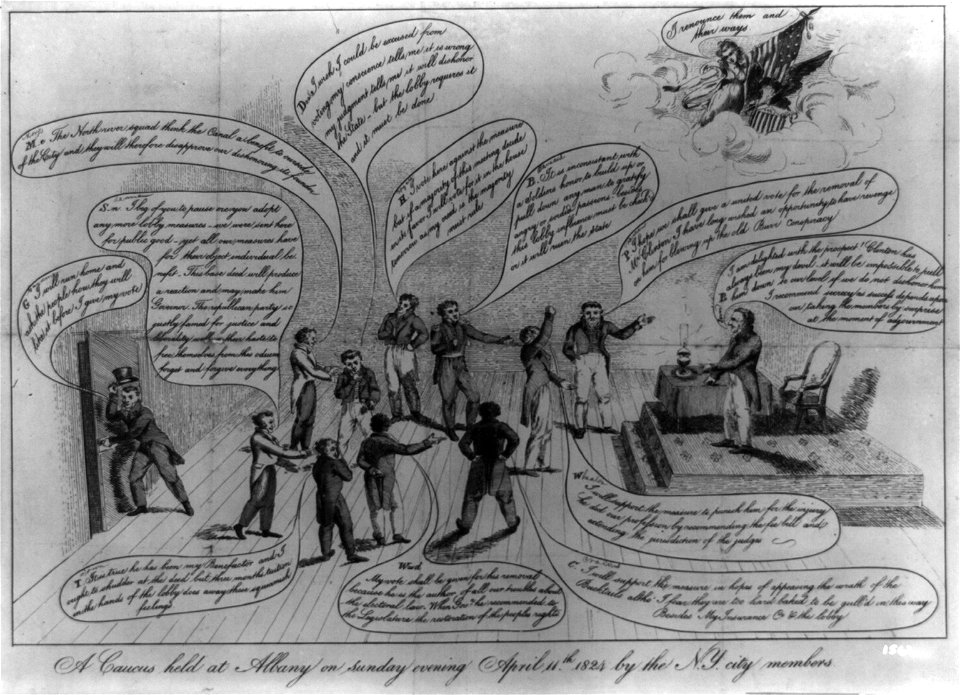 I renounce them and
their ways
Dear I wish I could be excused from
voting, my conscience tells me it is wrong
my judgment tells me it will dishonor
the State - but the lobby requires it
and it must be done
M c The North river squad think the Canal a benefit to
of the City and they will therefore disapprove our dishonoring its founder
H I vote here against the measures
but if a majority of this meeting decide
in its favour I will vote for it in the house
inasmuch as my creed is the majority
must rule
B It is inconsistent with
a soldiers honor, to build up or
pull down any man to gratify
angry or sordid passions -
this lobby influence must be check
or it will ruin the state
P I hope we shall give a united vote for the removal of
Mr Clinton. I have long wished an opportunity to have revenge
on him for blowing up the old Burr Conspiracy
S n I beg of you to pause ere you adopt
any more lobby measures - we were sent here
for public good - yet all our measures have
for their object individual be
nefit. This base deed will produce
a reaction and may make him
Governor. The republican party so
justly famed for justice and
liberality will in their haste to
free themselves from this odium
forget and forgive everything
G I will run home and
ask the people how they will
like it before I give my vote
I am delighted with the prospect! Clinton has
always been my devil. it will be impossible to pull
him down to our level if we do not dishonor him
I recommend secrecy as success depends upon
our taking the members by surprise
at the moment of adjournment
I will support the measure to punish him for the injury
he did our profession by recommending the fee bill and
extending the jurisdiction of the judges
C I will support the measure in hopes of appeasing the wrath of the
Bucktails altho' I fear they are too hard baked to be gull'd in this way
Besides My Insurance Co & the lobby
Ward
My vote shall be given for his removal
because he is the author of all our troubles about
the electoral law. When Govr he recommended to
the Legislature the restoration of the peoples rights
T Tis true he has been my Benefactor and I
ought to shudder at the deed but three months tuition
in the hands of the lobby does away these squeamish
feelings
A Caucus held at Albany on Sunday evening April 11th 1824 by the N.Y. city members